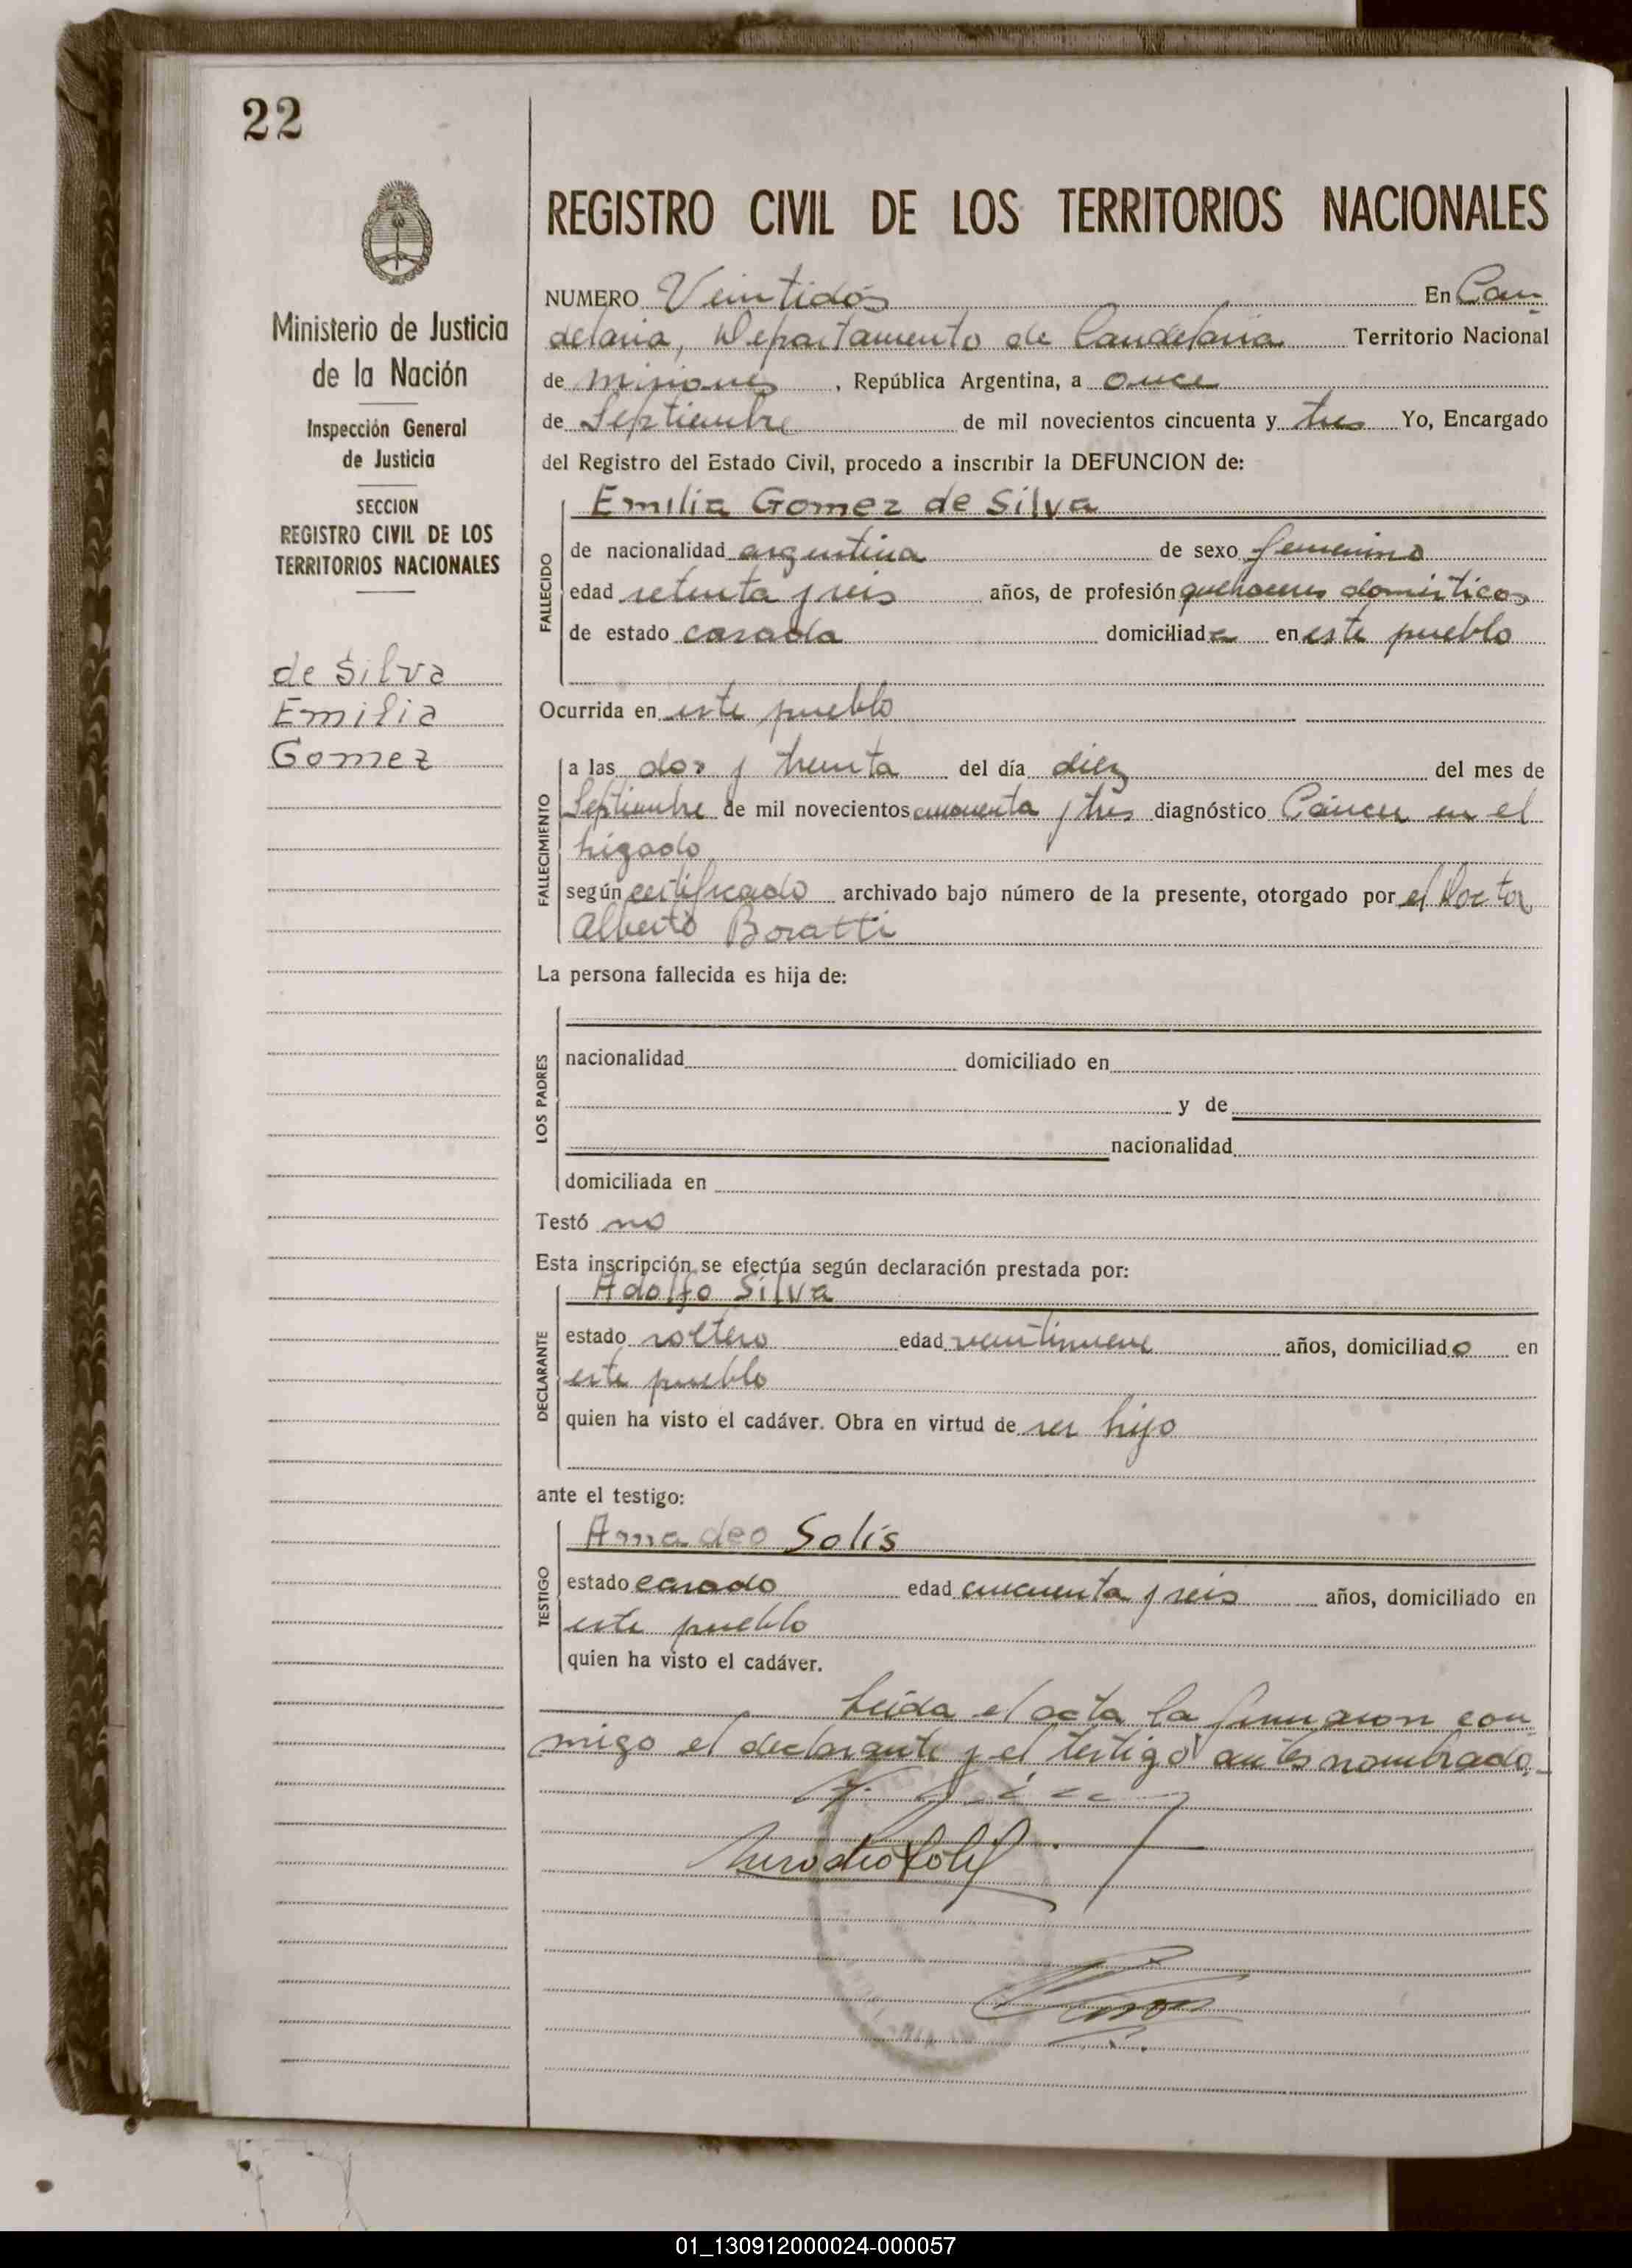 22
Ministerio de Justicia
de la Nación
Inspección General
de Justicia
SECCION
REGISTRO CIVIL DE LOS
TERRITORIOS NACIONALES
de Silva
Emilia
Gomez
REGISTRO CIVIL DE LOS TERRITORIOS NACIONALES
NUMERO Veintidós En Can
delaria, Departamento de Candelaria Territorio Nacional
de Misiones, República Argentina, a once
de Septiembre de mil novecientos cincuenta y tres Yo, Encargado
del Registro del Estado Civil, procedo a inscribir la DEFUNCION de:
Emilia Gomez de Silva
FALLECIDO
de nacionalidad argentina de sexo femenino
edad setenta y seis años, de profesión quehaceres domésticos
de estado casada domiciliada en este pueblo
Ocurrida en este pueblo
FALLECIMIENTO
a las dos y treinta del día diez del mes de
Septiembre de mil novecientos cincuenta y tres diagnóstico Cáncer en el
hígado
según certificado archivado bajo número de la presente, otorgado por el Doctor
Alberto Boratti
La persona fallecida es hija de:
LOS PADRES
nacionalidad domiciliado en
y de
nacionalidad
domiciliada en
Testó no
Esta inscripción se efectúa según declaración prestada por:
Adolfo Silva
DECLARANTE
estado soltero edad veintinueve años, domiciliado en
este pueblo
quien ha visto el cadáver. Obra en virtud de ser hijo
ante el testigo:
Amadeo Solís
TESTIGO
estado casado edad cincuenta y seis años, domiciliado en
este pueblo
quien ha visto el cadáver.
Leída el acta la firmaron con
migo el declarante y el testigo antes nombrado.
01_130912000024-000057